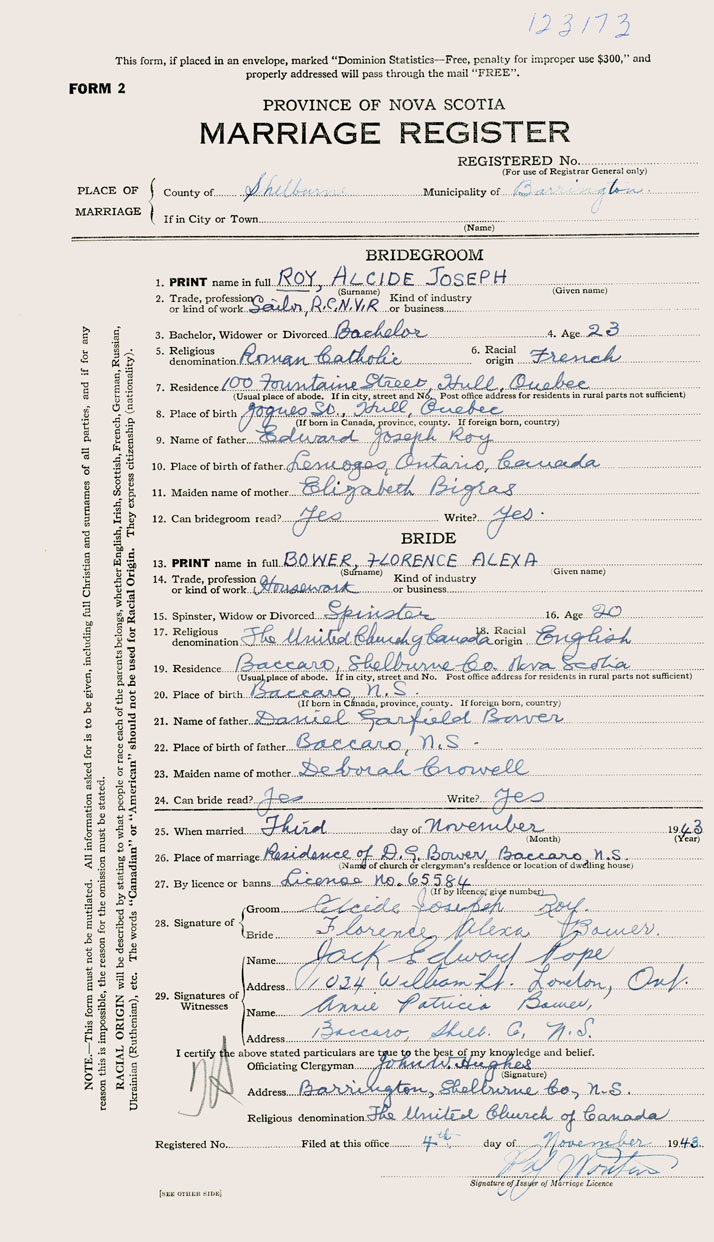 123173
This form, if placed in an envelope, marked "Dominion Statistics—Free, penalty for improper use $300," and
properly addressed will pass through the mail "FREE".
FORM 2
PROVINCE OF NOVA SCOTIA
MARRIAGE REGISTER
REGISTERED No.
(For use of Registrar General only)
PLACE OF MARRIAGE
County of Shelburne Municipality of Barrington.
If in City or Town
(Name)
BRIDEGROOM
1. PRINT name in full ROY, ALCIDE JOSEPH
(Surname) (Given name)
2. Trade, profession or kind of work Sailor, R.C.N.V.R Kind of industry or business
3. Bachelor, Widower or Divorced Bachelor 4. Age 23
5. Religious denomination Roman Catholic 6. Racial origin French
7. Residence 100 Fountaine Street, Hull, Quebec
(Usual place of abode. If in city, street and No. Post office address for residents in rural parts not sufficient)
8. Place of birth Jogues St., Hull, Quebec
(If born in Canada, province, county. If foreign born, country)
9. Name of father Edward Joseph Roy
10. Place of birth of father Lemoges, Ontario, Canada
11. Maiden name of mother Elizabeth Bigras
12. Can bridegroom read? Yes Write? Yes.
BRIDE
13. PRINT name in full BOWER, FLORENCE ALEXA
(Surname) (Given name)
14. Trade, profession or kind of work Housework Kind of industry or business
15. Spinster, Widow or Divorced Spinster 16. Age 20
17. Religious denomination The United Church of Canada 18. Racial origin English
19. Residence Baccaro, Shelburne Co. Nova Scotia
(Usual place of abode. If in city, street and No. Post office address for residents in rural parts not sufficient)
20. Place of birth Baccaro, N.S.
(If born in Canada, province, county. If foreign born, country)
21. Name of father Daniel Garfield Bower
22. Place of birth of father Baccaro, N.S.
23. Maiden name of mother Deborah Crowell
24. Can bride read? Yes Write? Yes
25. When married Third day of November 1943
(Month) (Year)
26. Place of marriage Residence of D.G. Bower, Baccaro, N.S.
(Name of church or clergyman's residence or location of dwelling house)
27. By licence or banns License No. 65584
(If by licence, give number)
28. Signature of
Groom Alcide Joseph Roy.
Bride Florence Alexa Bower.
29. Signatures of Witnesses
Name Jack Edward Pope
Address 1034 William St. London, Ont.
Name Annie Patricia Bower,
Address Baccaro, Shelb. Co, N.S.
I certify the above stated particulars are true to the best of my knowledge and belief.
Officiating Clergyman John W. Hughes
(Signature)
Address Barrington, Shelburne Co., N.S.
Religious denomination The United Church of Canada
Registered No. Filed at this office 4th day of November 1943
Signature of Issuer of Marriage Licence
[SEE OTHER SIDE]
NOTE.—This form must not be mutilated. All information asked for is to be given, including full Christian and surnames of all parties, and if for any
reason this is impossible, the reason for the omission must be stated.
RACIAL ORIGIN will be described by stating to what people or race each of the parents belongs, whether English, Irish, Scottish, French, German, Russian,
Ukrainian (Ruthenian), etc. The words "Canadian" or "American" should not be used for Racial Origin. They express citizenship (nationality).